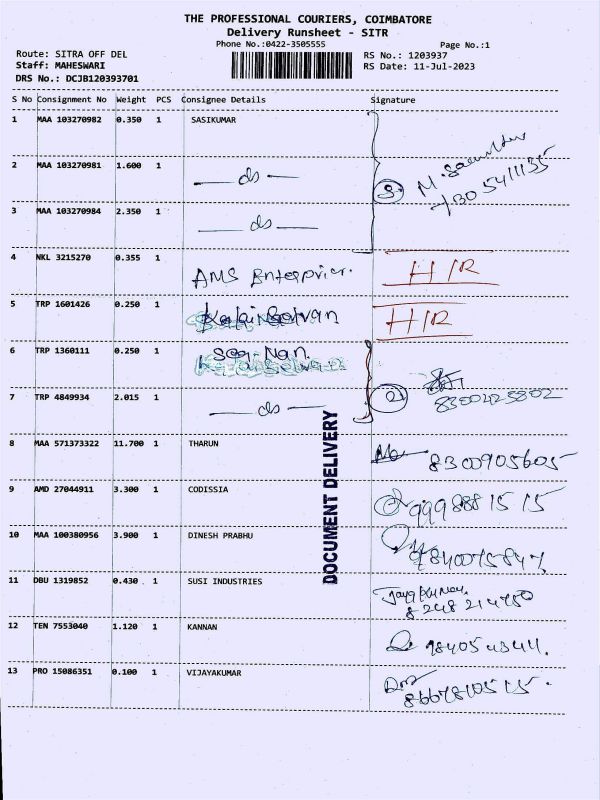 THE PROFESSIONAL COURIERS, COIMBATORE
Delivery Runsheet - SITR
Phone No.:0422-3505555 Page No.:1
Route: SITRA OFF DEL RS No.: 1203937
Staff: MAHESWARI RS Date: 11-Jul-2023
DRS No.: DCJB120393701
S No Consignment No Weight PCS Consignee Details Signature
1 MAA 103270982 0.350 1 SASIKUMAR
2 MAA 103270981 1.600 1 — ds — 3 M.
3 MAA 103270984 2.350 1 — ds —
4 NKL 3215270 0.355 1 AMS Enterprier. H/R
5 TRP 1601426 0.250 1 H/R
6 TRP 1360111 0.250 1
7 TRP 4849934 2.015 1 — ds — 2
8 MAA 571373322 11.700 1 THARUN 8300905605
9 AMD 27044911 3.300 1 CODISSIA 9998881515
10 MAA 100380956 3.900 1 DINESH PRABHU
11 DBU 1319852 0.430 1 SUSI INDUSTRIES
12 TEN 7553040 1.120 1 KANNAN
13 PRO 15086351 0.100 1 VIJAYAKUMAR
DOCUMENT DELIVERY